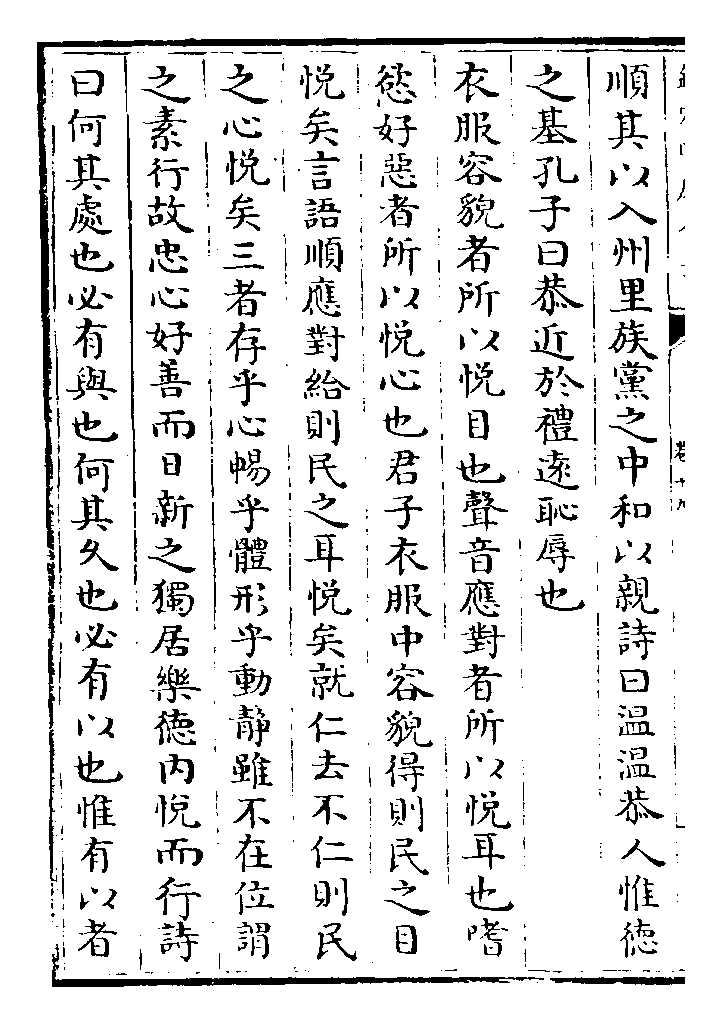 順其以入州里族黨之中和以親詩曰温温恭人惟德
之基孔子曰恭近於禮遠恥辱也
衣服容貌者所以悦目也聲音應對者所以悦耳也嗜
慾好惡者所以悦心也君子衣服中容貌得則民之目
悦矣言語順應對給則民之耳悦矣就仁去不仁則民
之心悦矣三者存乎心暢乎體形乎動静雖不在位謂
之素行故忠心好善而日新之獨居樂德内悦而行詩
曰何其處也必有與也何其久也必有以也惟有以者